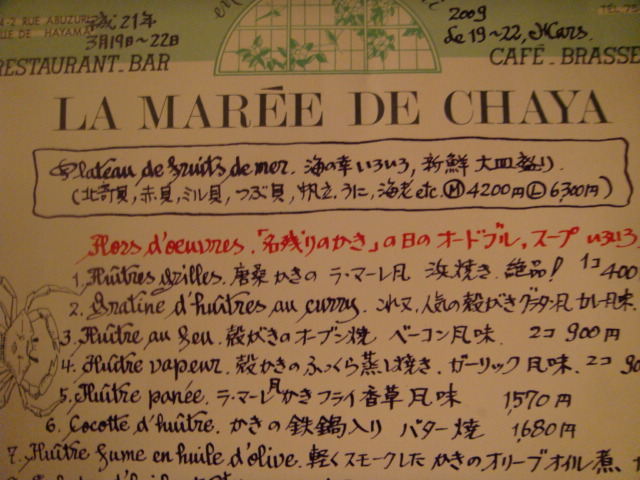 4-2 RUE ABUZURU
UE DE HAYAMA
平成21年
3月19日~22日
2009
de 19~22, Mars.
RESTAURANT_BAR
CAFÉ_BRASSE
LA MARÉE DE CHAYA
Plateau de fruits de mer. 海の幸いろいろ, 新鮮 大皿盛り.
(北寄貝, 赤貝, ミル貝, つぶ貝, 帆立, うに, 海老 etc. Ⓜ 4200円 Ⓛ 6,300円)
Hors d'oeuvres. 「名残りのかき」の日のオードブル, スープ いろいろ
1. Huîtres Grilles. 唐桑かきの ラ・マーレ風 浜焼き. 絶品! 1コ 400
2. Gratine d'huîtres au curry. これ又, 人気の殻がきグラタン風 カレー風味.
3. Huître au feu. 殻がきのオーブン焼 ベーコン風味. 2コ 900円
4. Huître vapeur. 殻かきのふっくら蒸し焼き. ガーリック風味. 2コ 90
5. Huître panée. ラ・マーレ風かきフライ 香草風味 1,570円
6. Cocotte d'huître. かきの鉄鍋入り バター焼 1,680円
7. Huître fume en huile d'olive. 軽くスモークした かきのオリーブオイル煮,